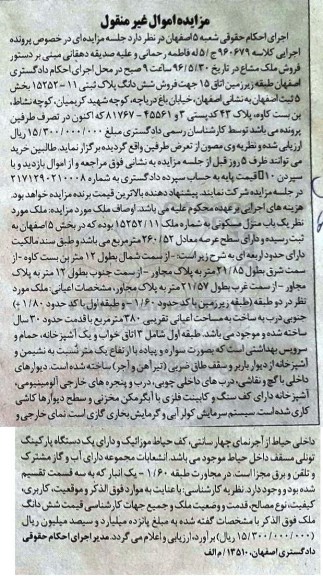 مزایده اموال غیر منقول
اجرای احکام حقوقی شعبه ۵ اصفهان در نظر دارد جلسه مزایده ای در خصوص پرونده
اجرایی کلاسه ۹۶۰۶۷۹ ج/۵ له فاطمه رحمانی و علیه صدیقه دهقانی مبنی بر دستور
فروش ملک مشاع در تاریخ ۹۶/۵/۳۰ ساعت ۹ صبح در محل اجرای احکام دادگستری
اصفهان طبقه زیرزمین اتاق ۱۵ جهت فروش شش دانگ پلاک ثبتی ۱۱ - ۱۵۲۵۲ بخش
۵ ثبت اصفهان به نشانی اصفهان، خیابان باغ دریاچه، کوچه شهید کریمیان، کوچه نشاط،
بن بست کاوه، پلاک ۴۳ کدپستی ۳ و ۴۵۵۶۱ - ۸۱۷۶۷ که اکنون در تصرف طرفین
پرونده می باشد توسط کارشناس رسمی دادگستری مبلغ ۱۵/۳۰۰/۰۰۰/۰۰۰ ریال
ارزیابی شده و نظریه وی مصون از تعرض طرفین واقع گردیده برگزار نماید. طالبین خرید
می توانند ظرف ۵ روز قبل از جلسه مزایده به نشانی فوق مراجعه و از اموال بازدید و با
سپردن ۱۰٪ قیمت پایه به حساب سپرده دادگستری به شماره ۲۱۷۱۲۹۰۲۱۰۰۰۸
در جلسه مزایده شرکت نمایند. پیشنهاد دهنده بالاترین قیمت برنده مزایده خواهد بود.
هزینه های اجرایی بر عهده محکوم علیه می باشد. اوصاف ملک مورد مزایده: ملک مورد
نظر یک باب منزل مسکونی به شماره ملک ۱۵۲۵۲/۱۱ بوده که در بخش ۵ اصفهان به
ثبت رسیده و دارای سطح عرصه معادل ۲۶۰/۵۲ مترمربع می باشد و طبق سند مالکیت
دارای حدود اربعه ای به شرح زیر است: - از سمت شمال بطول ۱۲ متر بن بست کاوه - از
سمت شرق بطول ۲۱/۸۵ متر به پلاک مجاور - از سمت جنوب بطول ۱۲ متر به پلاک
مجاور - از سمت غرب بطول ۲۱/۵۷ متر به پلاک مجاور، مشخصات اعیانی: ملک مورد
نظر در دو طبقه (طبقه زیرزمین با کد حدود ۱/۶۰- و طبقه اول با کد حدود ۰/۸۰+)
جنوبی درب به ساخت به مساحت اعیانی تقریبی ۳۸۰ مترمربع با قدمت حدود ۳۰ سال
ساخته شده و موجود می باشد. طبقه اول شامل ۳ اتاق خواب و یک آشپزخانه، حمام و
سرویس بهداشتی است که بصورت سواره و پیاده با ارتفاع یک متر نسبت به نشیمن و
آشپزخانه از دیوار باربر و سقف طاق ضربی (تیرآهن و آجر) ساخته شده است. دیوارهای
داخلی با گچ و نقاشی، درب های داخلی چوبی، درب و پنجره های خارجی آلومینیومی،
آشپزخانه دارای کف سنگ و کابینت فلزی با آبگرمکن مخزنی و سطح دیوارها کاشی
کاری شده است. سیستم سرمایش کولر آبی و گرمایش بخاری گازی است. نمای خارجی و
داخلی حیاط از آجر نمای چهار سانتی، کف حیاط موزائیک و دارای یک دستگاه پارکینگ
تونلی مسقف داخل حیاط موجود می باشد. انشعابات مجموعه دارای آب و گاز مشترک
و تلفن و برق مجزا است. در مجاورت طبقه ۱/۶۰- یک انبار که به سه قسمت تقسیم
شده بود وجود دارد. نظر به کارشناسی: با عنایت به موارد فوق الذکر و موقعیت، کاربری،
کیفیت، نوع مصالح، قدمت و وضعیت ملک و جمیع جهات کارشناسی قیمت شش دانگ
ملک فوق الذکر با مشخصات گفته شده به مبلغ پانزده میلیارد و سیصد میلیون ریال
(۱۵/۳۰۰/۰۰۰/۰۰۰ ریال) برآورد، ارزیابی و اعلام می گردد. مدیر اجرای احکام حقوقی
دادگستری اصفهان. ۱۳۵۱۰/ م الف